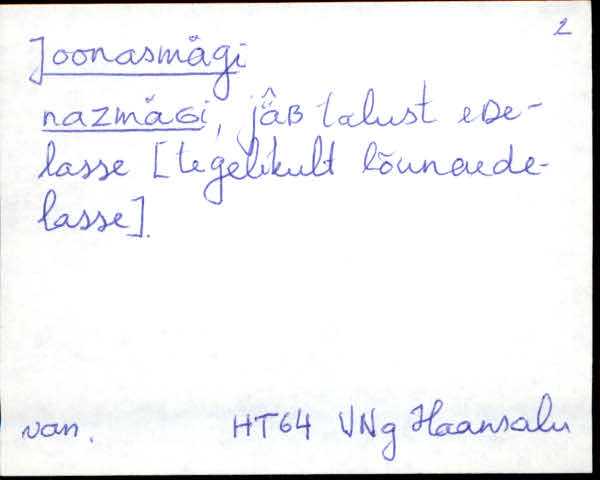 2
Joonasmägi
nazmäGi, jä̂B talust eDe-
lasse [tegelikult lõunaede-
lasse].
van. HT64 VNg Haansalu